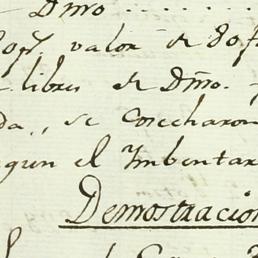 Dmo
valor de 80
libres de Dmo.
da,, se Cosecharon
egun el Imbentar
Demostracion